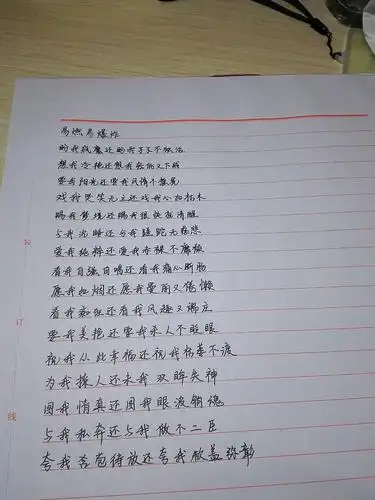 易燃易爆炸
盼我疯魔还盼我孑孓不独活
想我冷艳还想我轻佻又下贱
要我阳光还要我风情不摇晃
戏我哭笑无主还戏我心如枯木
赐我梦境还赐我很快就清醒
与我沉睡还与我蹉跎无慈悲
爱我纯粹还爱我赤裸不靡颓
看我自弹自唱还看我痛心断肠
愿我如烟还愿我曼丽又倦懒
看我痴狂还看我风趣又端庄
要我美艳还要我杀人不眨眼
祝我从此幸福还祝我枯萎不渡
为我撩人还未我双眸失神
因我情真还因我眼波销魂
与我私奔还与我做不二臣
夸我含苞待放还夸我欲盖弥彰
装
订
线